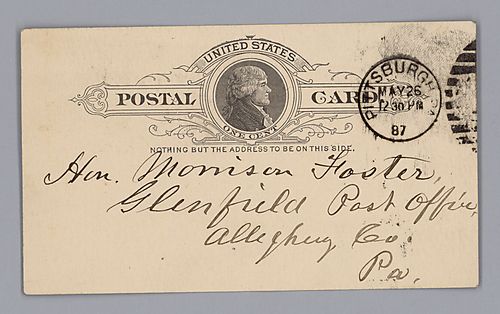 UNITED STATES
POSTAL CARD
ONE CENT
NOTHING BUT THE ADDRESS TO BE ON THIS SIDE.
PITTSBURGH PA
MAY 26
12 30 PM
87
Hon. Morrison Foster,
Glenfield Post Office,
Allegheny Co.
Pa.